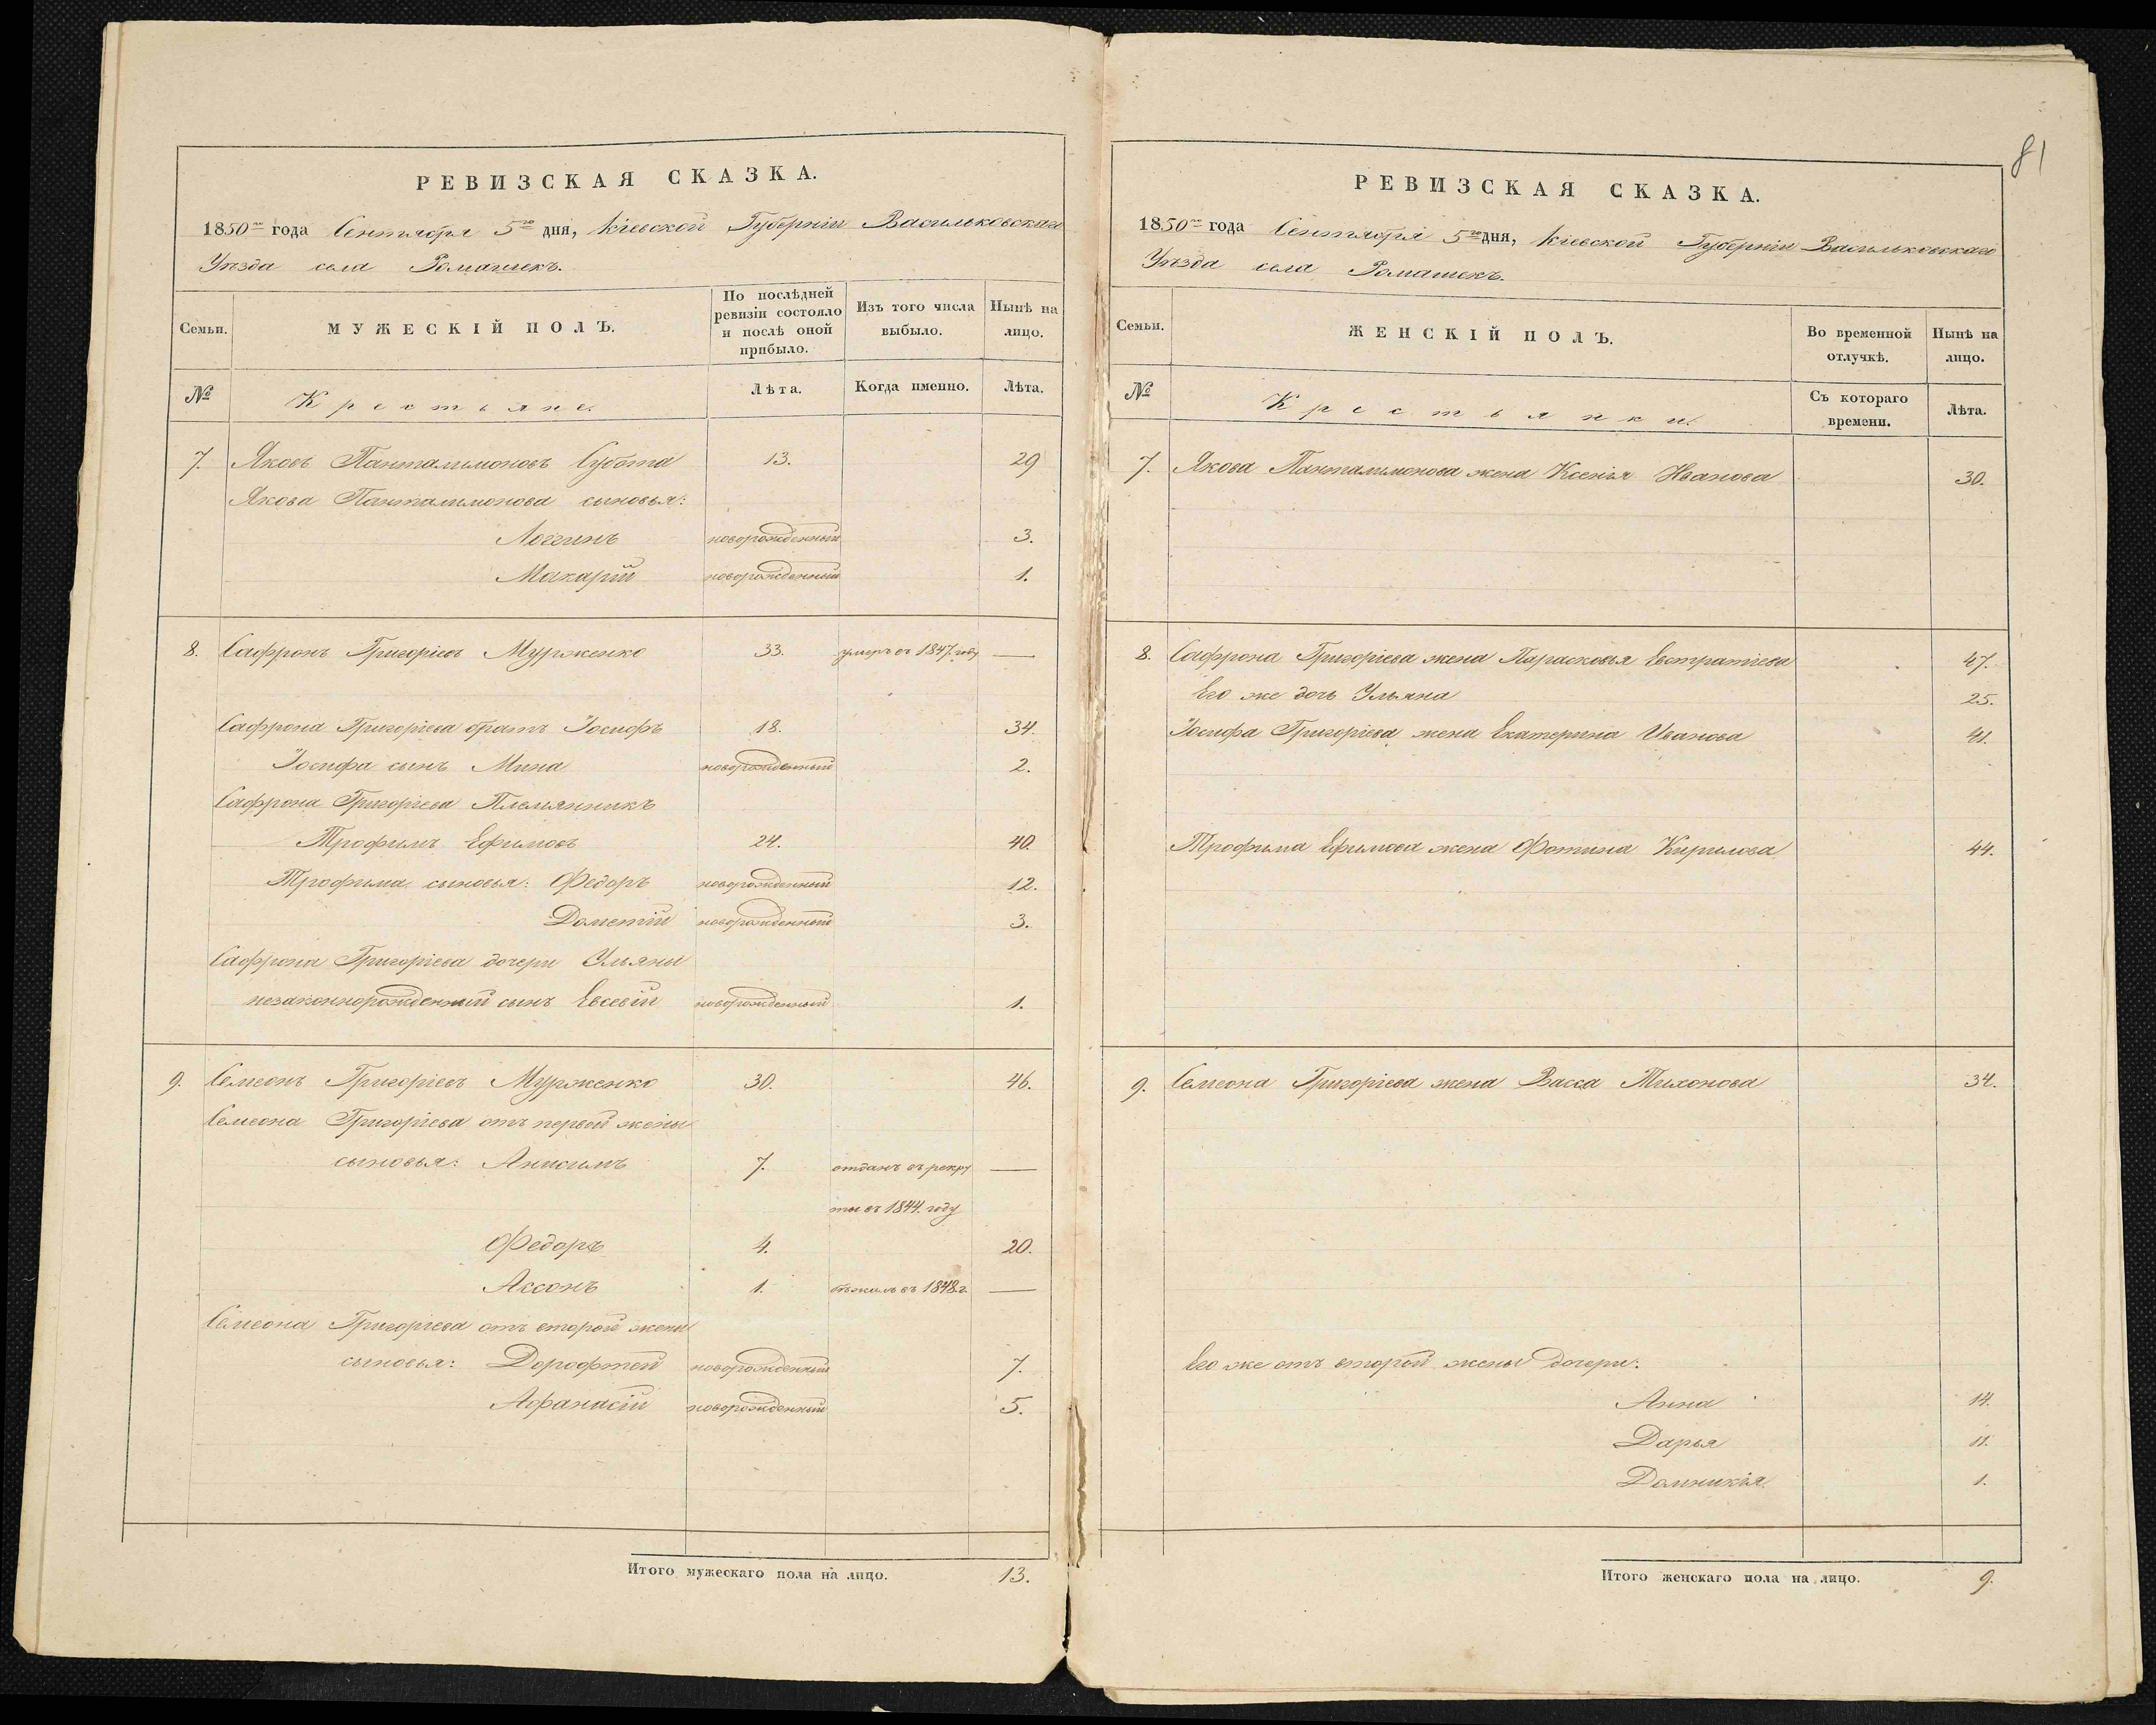 81
РЕВИЗСКАЯ СКАЗКА.
1850го года Сентября 5го дня, Кіевской Губерніи Васильковскаго
Уѣзда села Ромашекъ.
Семьи.
МУЖЕСКІЙ ПОЛЪ.
По послѣдней ревизіи состояло и послѣ оной прибыло.
Изъ того числа выбыло.
Нынѣ на лицо.
№
Крестьяне.
Лѣта.
Когда именно.
Лѣта.
7. Яковъ Пантелимоновъ Субота 13. 29
Якова Пантелимонова сыновья:
Логгинъ новорожденный 3.
Макарій новорожденный 1.
8. Сафронъ Григорьевъ Мурженко 33. умеръ въ 1847 году —
Сафрона Григорьева братъ Іосифъ 18. 34.
Іосифа сынъ Мина новорожденный 2.
Сафрона Григорьева Племянникъ
Трофимъ Ефимовъ 24. 40.
Трофима сыновья: Федоръ новорожденный 12.
Дометій новорожденный 3.
Сафрона Григорьева дочери Ульяны
незаконнорожденный сынъ Евсевій новорожденный 1.
9. Семеонъ Григорьевъ Мурженко 30. 46.
Семеона Григорьева отъ первой жены
сыновья: Анисимъ 7. отданъ въ рекру —
ты въ 1844. году
Федоръ 4. 20.
Аксонъ 1. бѣжалъ въ 1848 г. —
Семеона Григорьева отъ второй жены
сыновья: Дорофтей новорожденный 7.
Афанасій новорожденный 5.
Итого мужескаго пола на лицо. 13.
РЕВИЗСКАЯ СКАЗКА.
1850го года Сентября 5го дня, Кіевской Губерніи Васильковскаго
Уѣзда села Ромашекъ.
Семьи.
ЖЕНСКІЙ ПОЛЪ.
Во временной отлучкѣ.
Нынѣ на лицо.
№
Крестьянки.
Съ котораго времени.
Лѣта.
7. Якова Пантелимонова жена Ксенія Иванова 30.
8. Сафрона Григорьева жена Парасковья Евстратіева 47.
Его же дочь Ульяна 25.
Іосифа Григорьева жена Екатерина Иванова 41.
Трофима Ефимова жена Фотина Кирилова 44.
9. Семеона Григорьева жена Васса Тихонова 34.
Его же отъ второй жены дочери:
Анна 14.
Дарья 11.
Домникія 1.
Итого женскаго пола на лицо. 9.